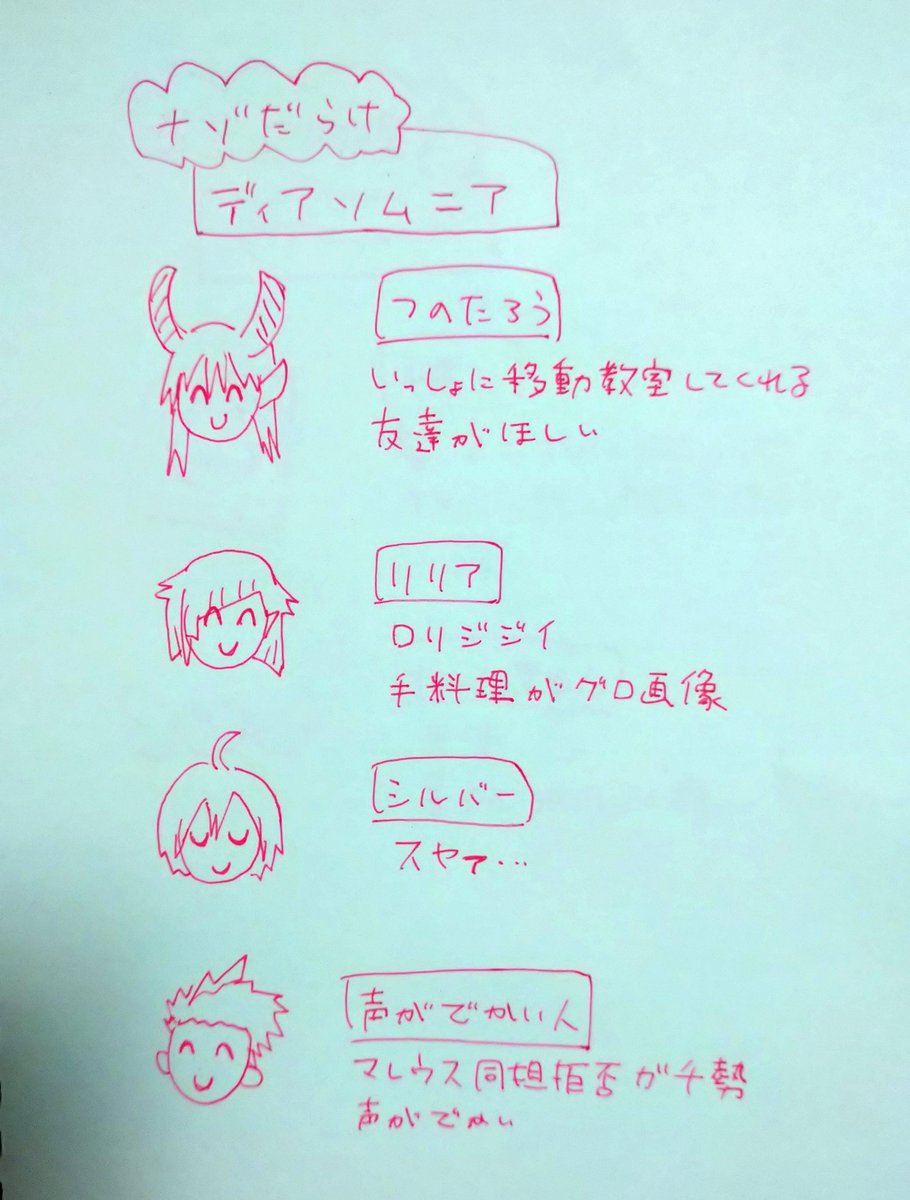 ナゾだらけ
ディアソムニア
つのたろう
いっしょに移動教室してくれる
友達がほしい
リリア
ロリジジイ
手料理がグロ画像
シルバー
スヤァ…
声がでかい人
マレウス同担拒否ガチ勢
声がでかい